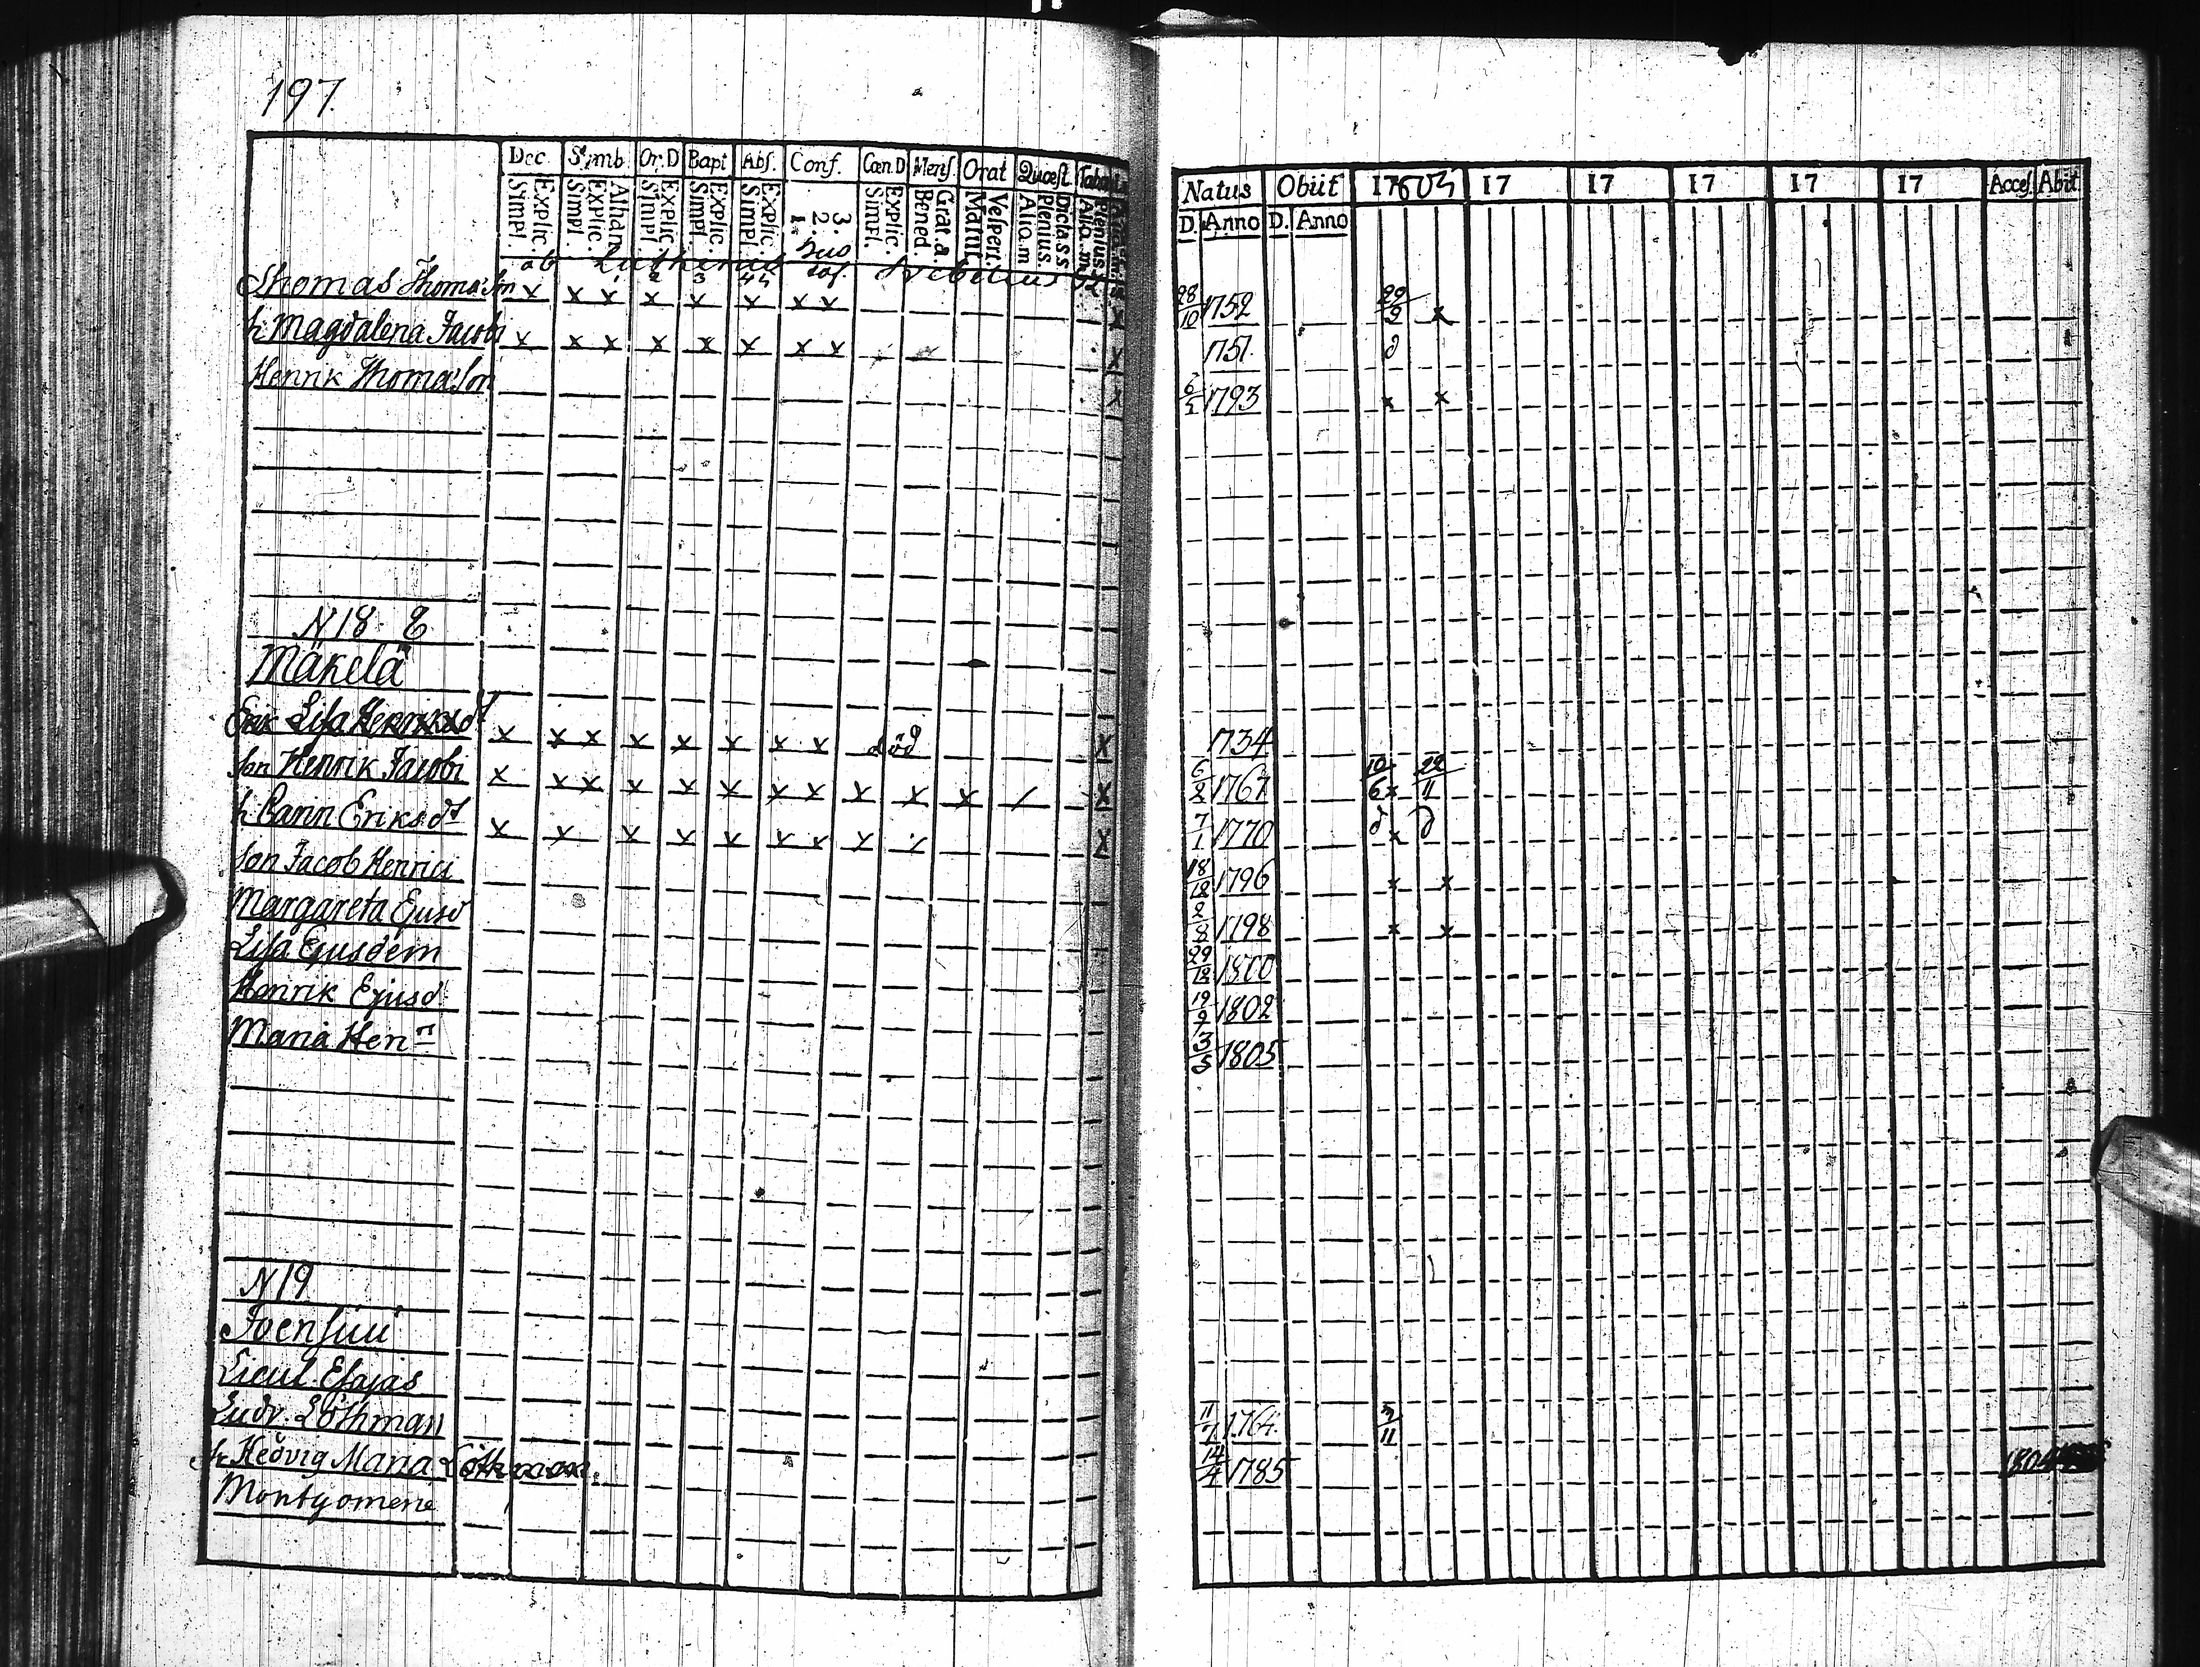 197.
Dec. Symb. Or.D Bapt Abs. Conf. Cœn.D Mens. Orat Quæst. Natus Obiit 1803 17 17 17 17 17 Acces. Abit
Simpl. Explic. Simpl. Explic. Athan. Simpl. Explic. Simpl. Explic. Simpl. Explic. 1. 2. 3. Simpl. Explic. Bened. Grat.a. Matut. Vespert. Alio.m Plenius. Dicta.s.s. Alio.m Plenius. D. Anno D. Anno
Thomas Thomas:son x x x x x x x x x 28/10 1752 x
h. Magdalena Jacobi x x x x x x x x x 1751. d
Henrik Thomas:son x 6/5 1793 x x
N 18
Mäkelä
Enk Lisa Henriksd x x x x x x x x död x 1734
son Henrik Jacobi x x x x x x x x x x x x 6/2 1767 10/6 x 22/11
h. Carin Eriksdr x x x x x x x x x 7/1 1770 d x d
son Jacob Henrici 18/12 1796 x x
Margareta Ejusd 2/8 1798 x x
Lisa Ejusdem 29/12 1800
Henrik Ejusd 19/9 1802
Maria Hen 3/5 1805
N 19
Joensuu
Lieut. Esajas
Ludv. Löthman 11/7 1764. 3/11
fr Hedvig Maria Löthman 14/4 1785 1804
Montgomerie